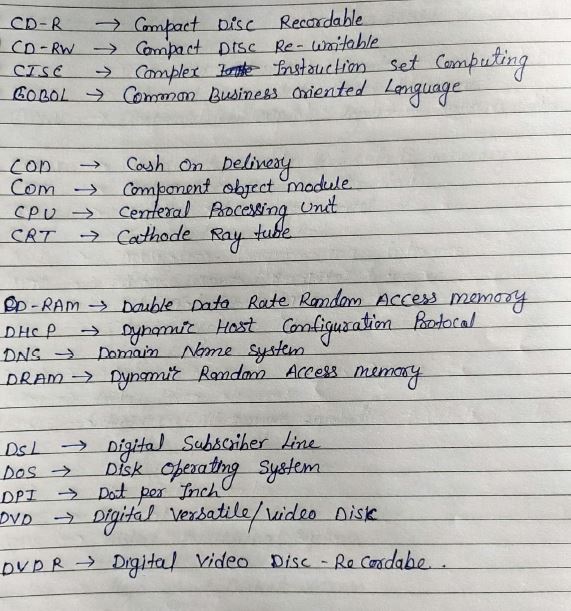 CD-R → Compact Disc Recordable
CD-RW → Compact Disc Re-writable
CISC → Complex Instruction set Computing
COBOL → Common Business oriented Language
COD → Cash On Delivery
COM → Component object module
CPU → Centeral Processing Unit
CRT → Cathode Ray tube
DD-RAM → Double Data Rate Random Access memory
DHCP → Dynamic Host Configuration Protocal
DNS → Domain Name System
DRAM → Dynamic Random Access memory
DSL → Digital Subscriber Line
DOS → Disk Operating System
DPI → Dot per Inch
DVD → Digital Versatile/video Disk
DVDR → Digital Video Disc - Recordabe.